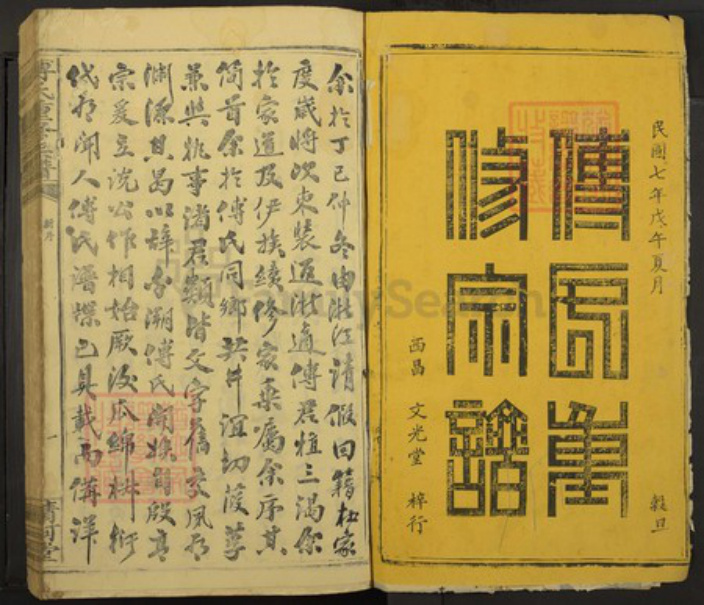 民國七年戊午夏月
穀旦
傅氏重
修宗譜
西昌 文光堂 梓行
余於丁巳仲冬由浙江請假回籍杜家
度歲將次束裝返浙適傅君植三過你
於家道及伊族續修家乘屬余序其
簡首余於傅氏同鄉共井誼切葭莩
兼與挑事諸君類皆文字舊交夙有
淵源其曷以辭余溯傅氏開族自殷高
宗爰立說公作相始厥後瓜綿椒衍
代有聞人傅氏譜牒已具載而備詳
傅氏重修宗譜
新序
一
清河堂